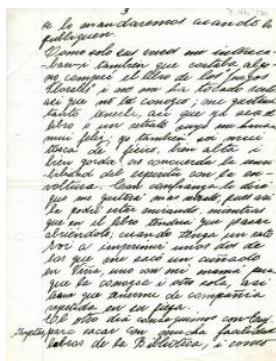 3
se lo mandaremos cuando lo
publiquen.
Como solo esas voces me interesa-
ban i también que costaba algo
no compré el libro de los Juegos
Florales i no me ha tocado
así que no la conozco; me gustaría
tanto tenerla, así que ya sea el
libro o un retrato suyo me haría
mui feliz; yo también soi medio
tosca de físico, bien alta i
bien gorda no concuerda la
del espíritu con la en-
voltura. Con confianza le digo
que me gustaría mas pues así
la podré estar mirando mientras
que en el libro tendría que pasar
abriéndolo; cuando tenga un rato
voi a imprimir unos dos de
los que me sacó un cuñado
en Viña, uno con mi mamá para
que la conozca i otro sola, así
tiene que tenerme de compañía
repetida en su
El otro día
para sacar con mucha facilidad
libros de la Biblioteca, i como